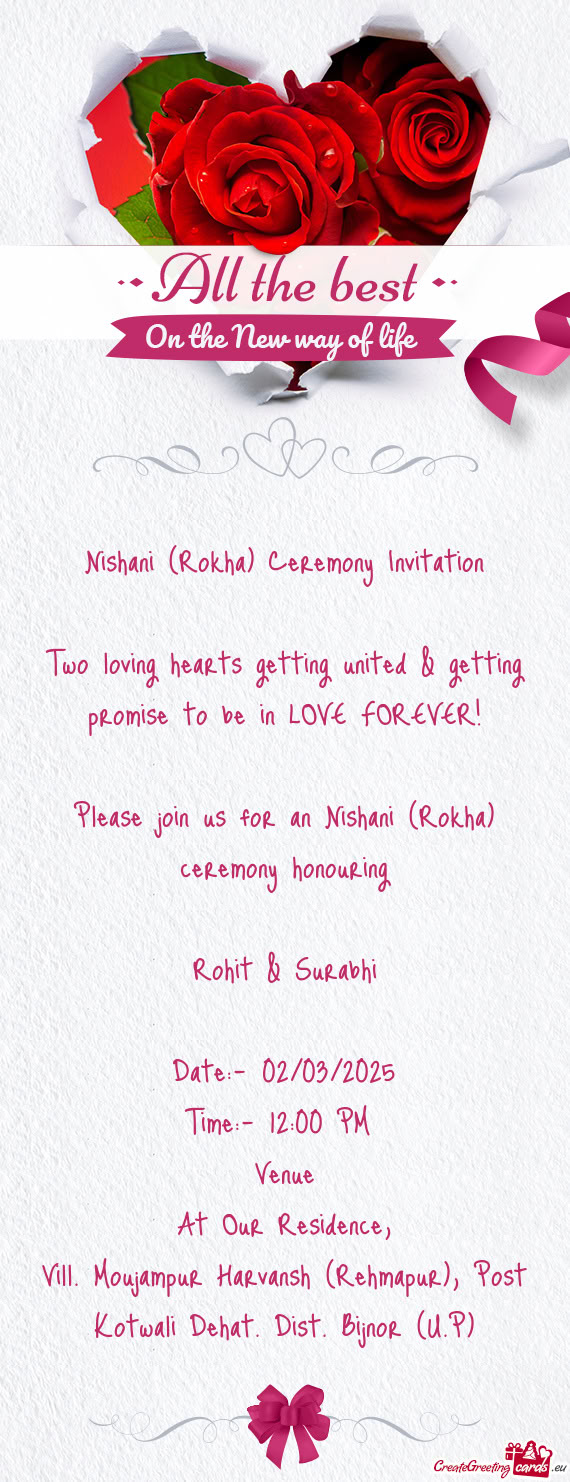 All the best
On the New way of life
Nishani (Rokha) Ceremony Invitation
Two loving hearts getting united & getting
promise to be in LOVE FOREVER!
Please join us for an Nishani (Rokha)
ceremony honouring
Rohit & Surabhi
Date:- 02/03/2025
Time:- 12:00 PM
Venue
At Our Residence,
Vill. Moujampur Harvansh (Rehmapur), Post
Kotwali Dehat. Dist. Bijnor (U.P)
CreateGreeting cards .eu